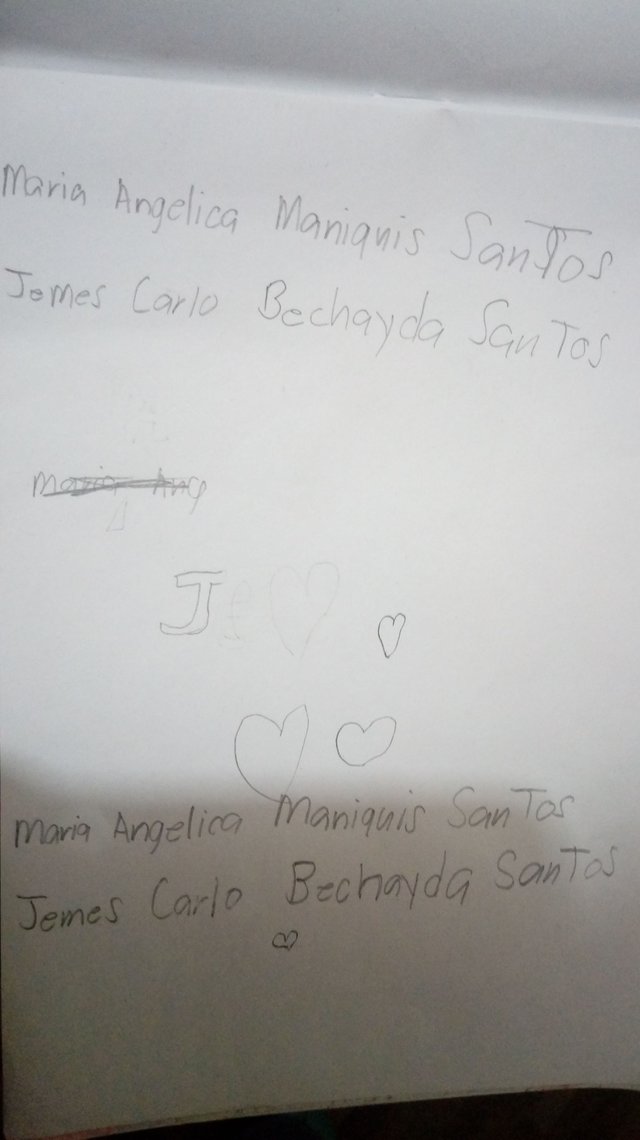 Maria Angelica Maniquis SanTos
Jemes Carlo Bechayda SanTos
Maria Ang
J
Maria Angelica Maniquis SanTos
Jemes Carlo Bechayda SanTos